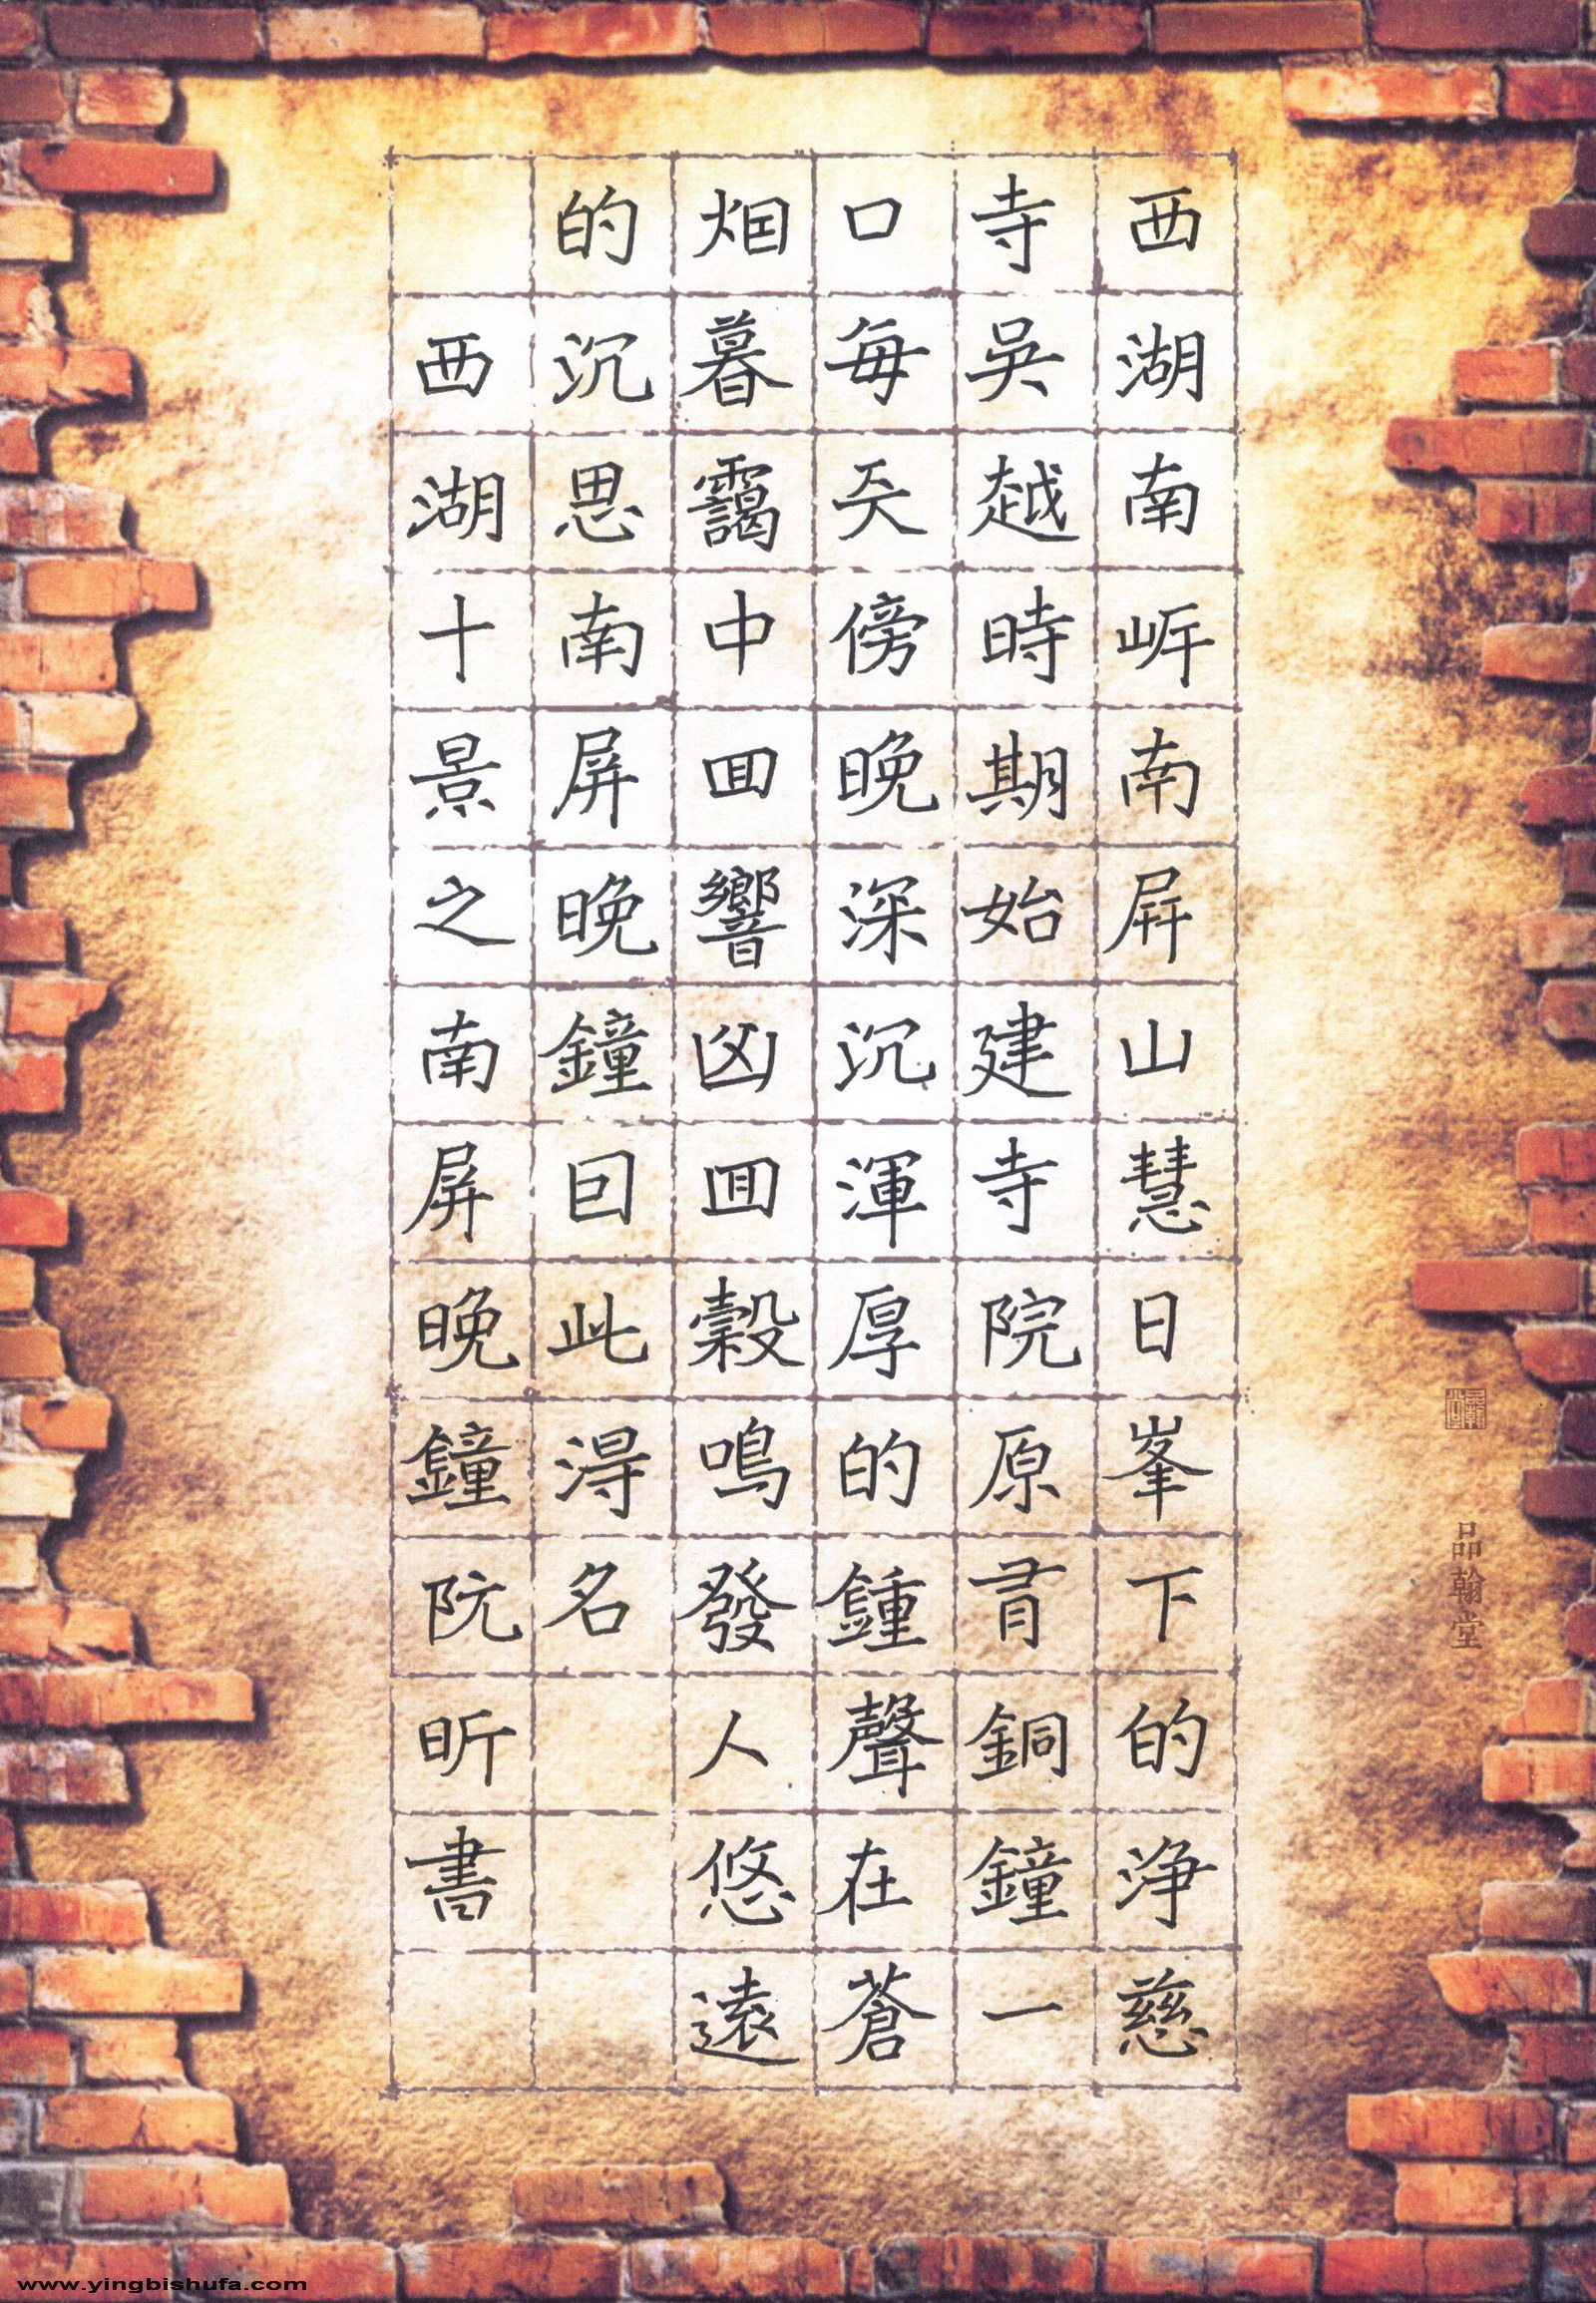 西湖南岍南屛山慧日峯下的浄慈
寺吳越時期始建寺院原有銅鐘一
口每天傍晚深沉渾厚的鍾聲在蒼
烟暮靄中回響凶回穀鳴發人悠遠
的沉思南屏晚鐘回此得名
西湖十景之南屏晚鐘阮昕書
品翰堂
www.yingbishufa.com